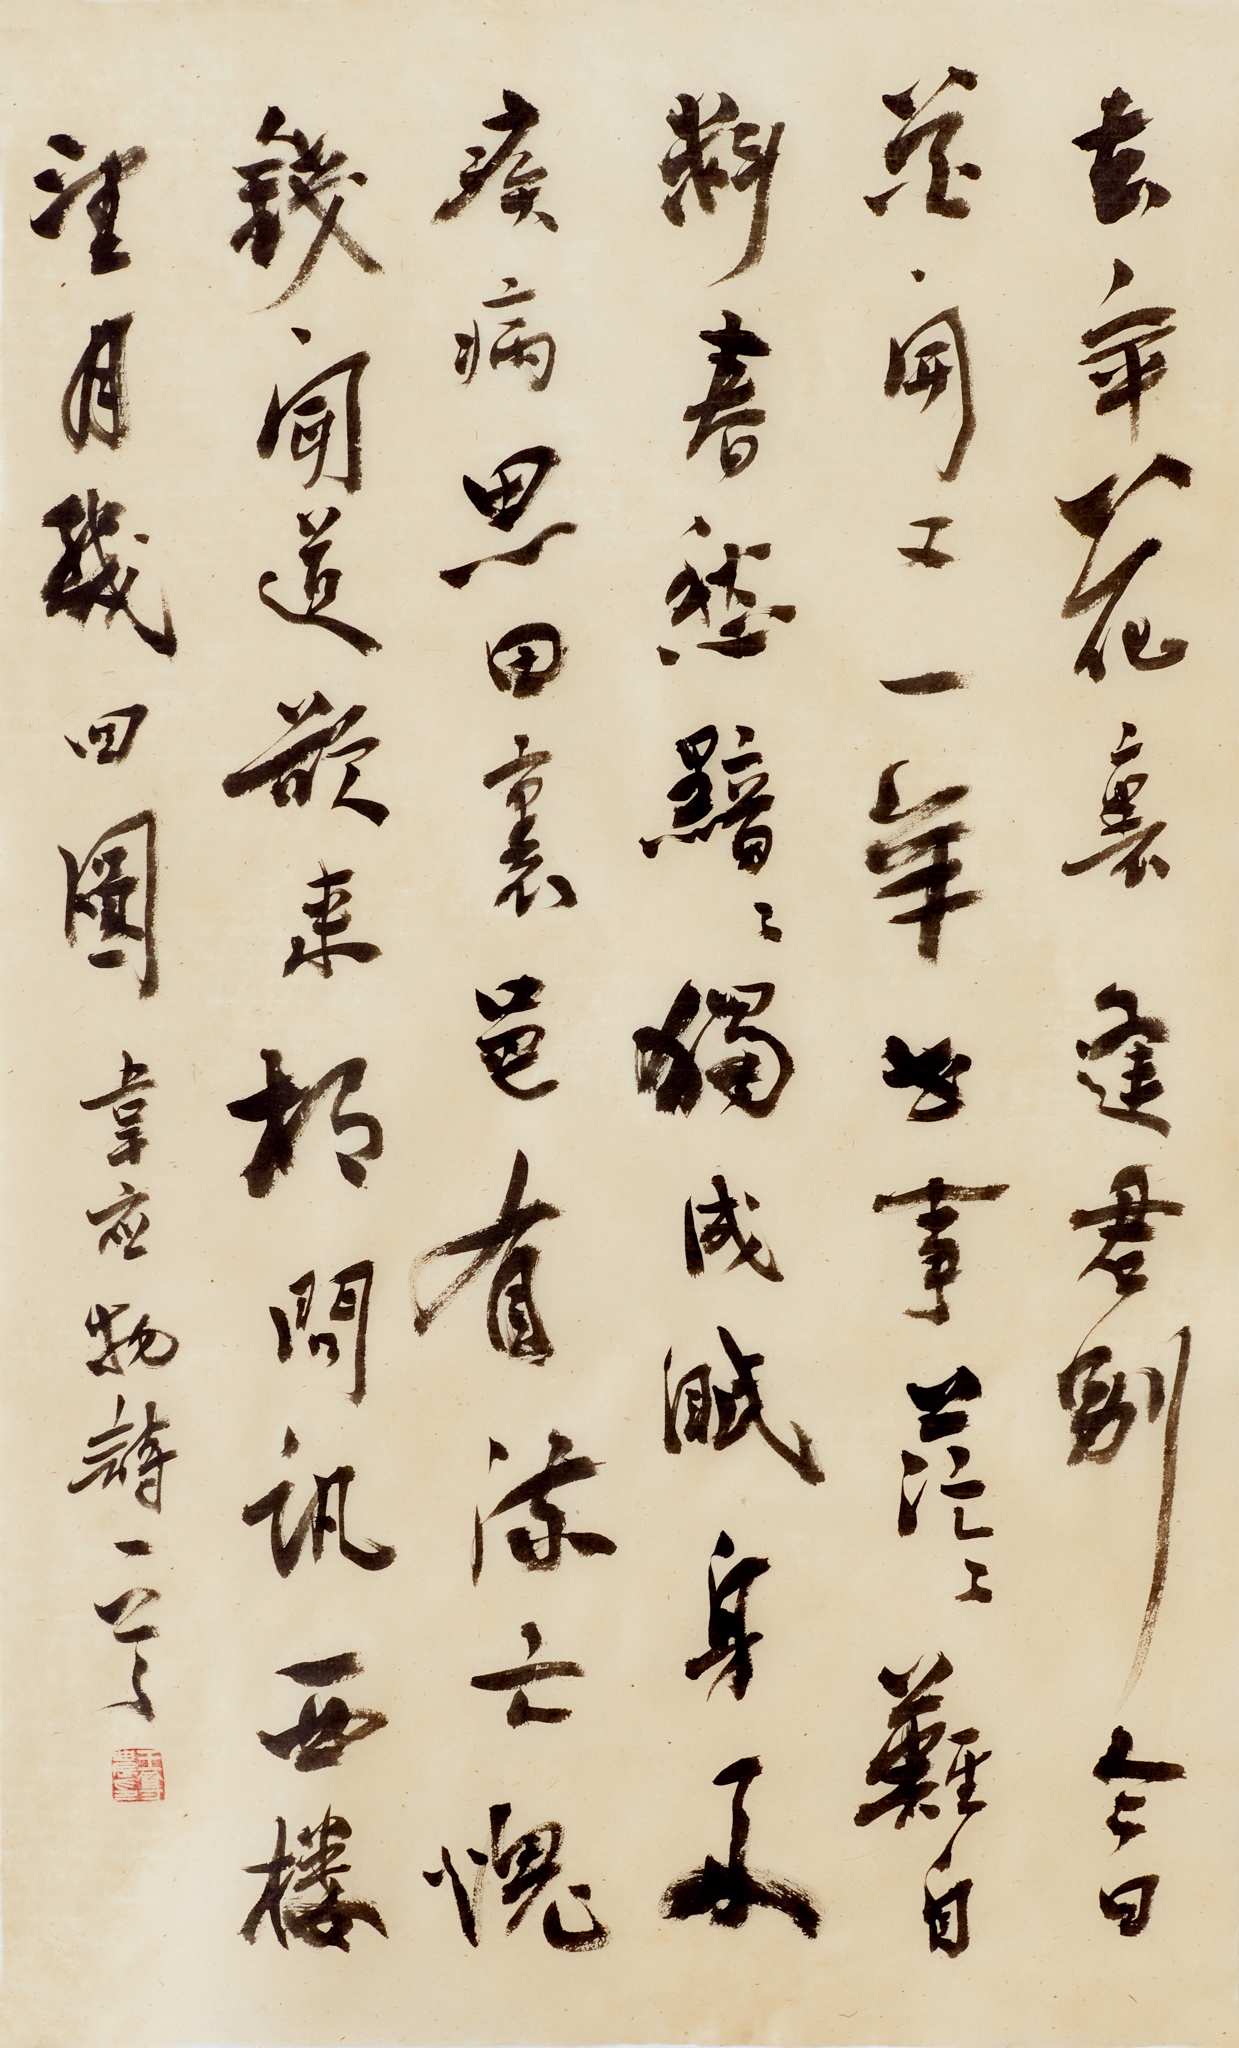 去年花裏逢君別今日
花開又一年世事茫〻難自
料春愁黯〻獨成眠身多
疾病思田裏邑有流亡愧
錢聞道欲来相問訊西楼
望月幾回圓 韋应物詩